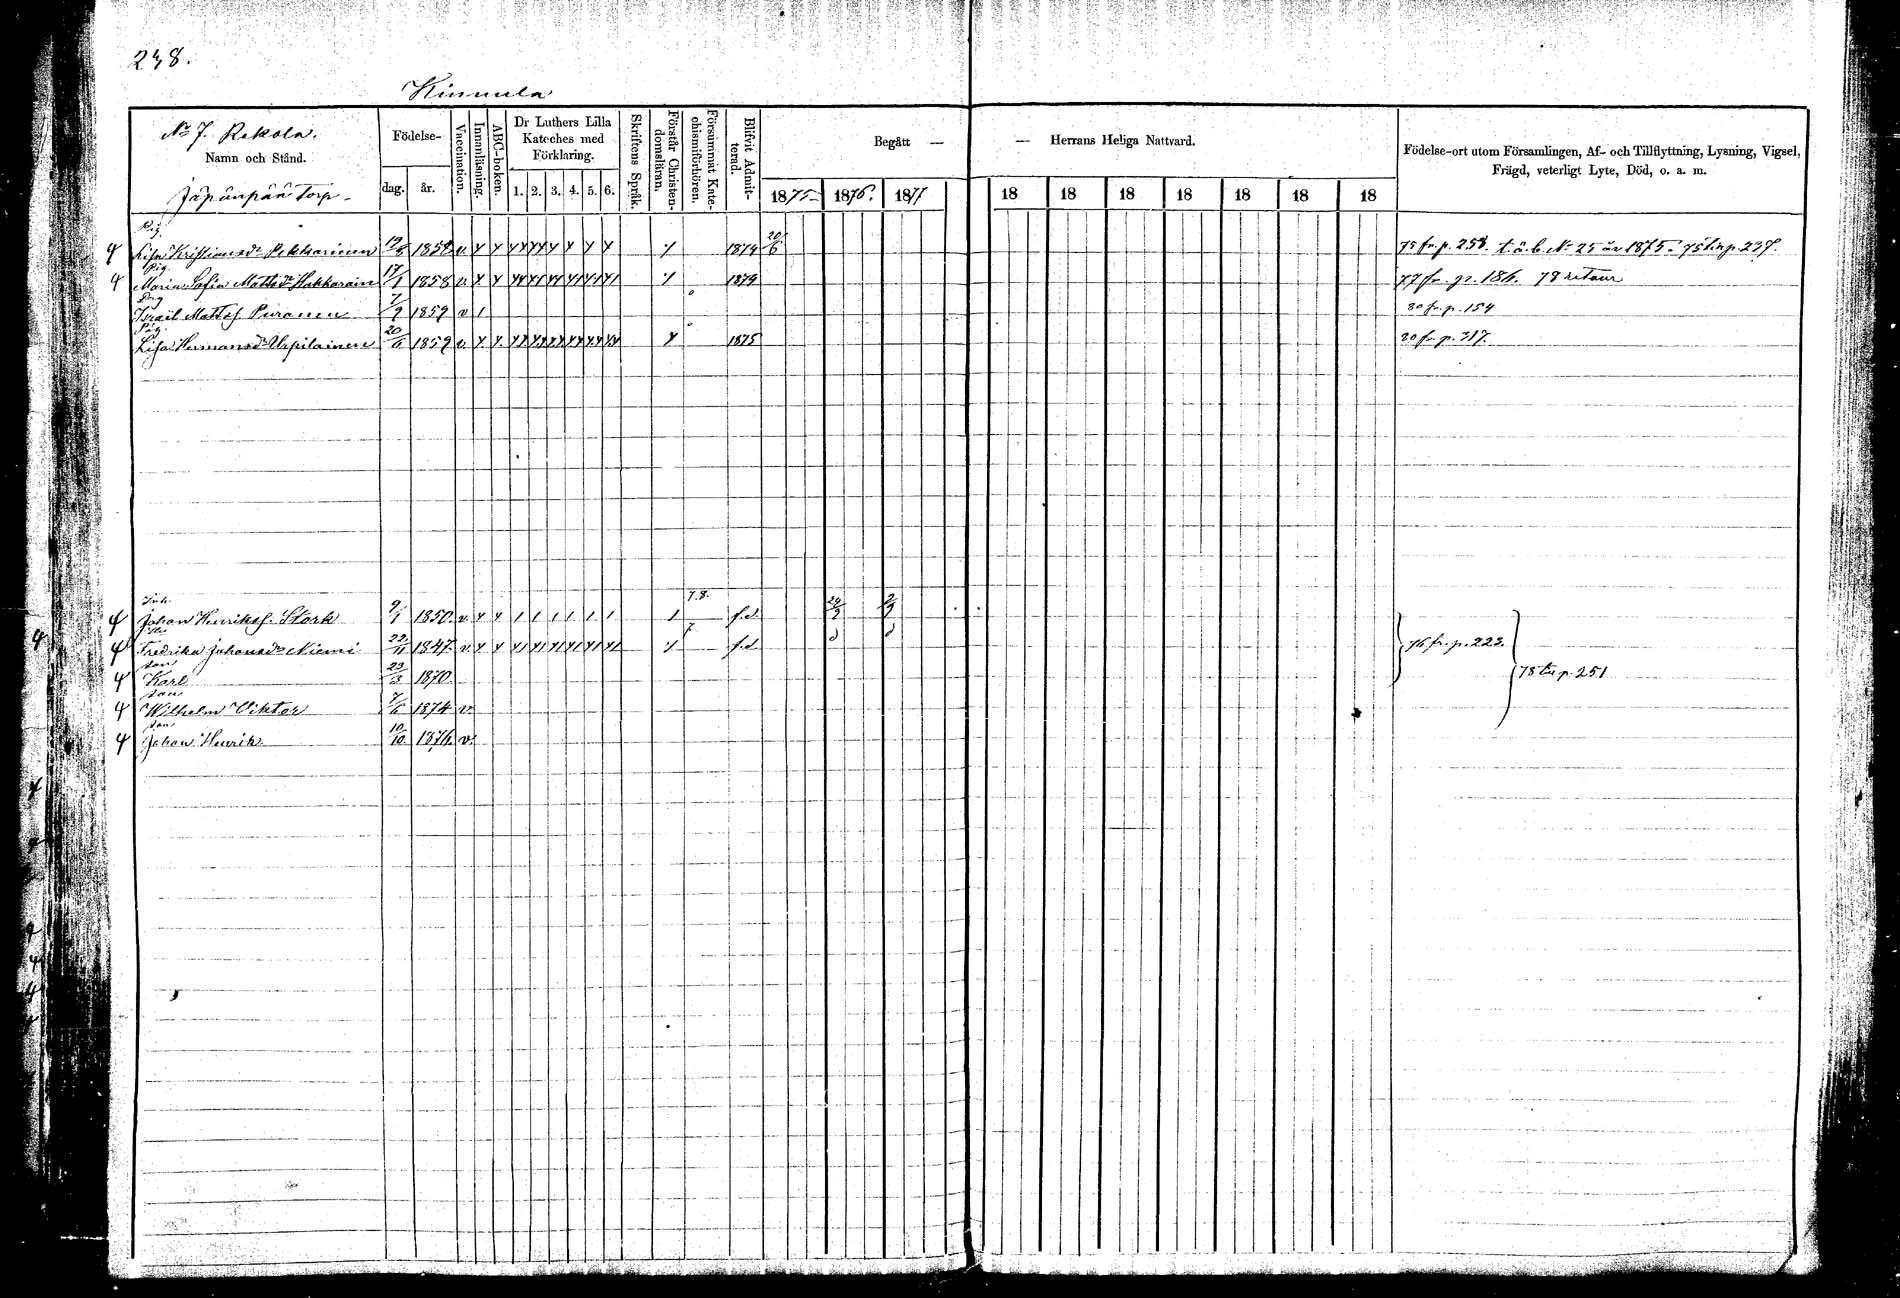 238.
Kinnula
No 7. Rekola.
Namn och Stånd.
Jäpänpää Torp
Födelse-
dag.
år.
Vaccination.
Innanläsning.
ABC-boken.
Dr Luthers Lilla
Kateches med
Förklaring.
1. 2. 3. 4. 5. 6.
Skriftens Språk.
Förstår Christen-
domsläran.
Försummat Kate-
chismiförhören.
Blifvit Admit-
terad.
Begått —
— Herrans Heliga Nattvard.
1875 1876. 1877 18 18 18 18 18 18 18
Födelse-ort utom Församlingen, Af- och Tillflyttning, Lysning, Vigsel,
Frägd, veterligt Lyte, Död, o. a. m.
Pig.
Lisa Kristiansdr Pekkarinen 1858 v. 1874 20/6 75 fr. p. 258. t. å. b. No 25 år 1875. 75 till p. 237.
Pig.
Maria Sofia Mattsdr Hakkarain 17/1 1858 v. 1874 77 fr. p. 184. 78 retour
Drg
Israil Mattsf. Puranen 7/9 1859 v 1 80 fr. p. 154
Pig.
Lisa Hermansdr Urpilainen 20/6 1859 v. 1875 80 fr. p. 317.
Inh.
Johan Henriksf. Stork 9/1 1850. v. 7.8. f.d. 24/9 2/9
Fredrika Johansdr Niemi 22/11 1847. v. 7 f.d. 76 fr. p. 223.
son
Karl 23/3 1870. 78 till p. 251
son
Wilhelm Viktor 7/6 1874 v
son
Johan Henrik 10/10 1876. v.